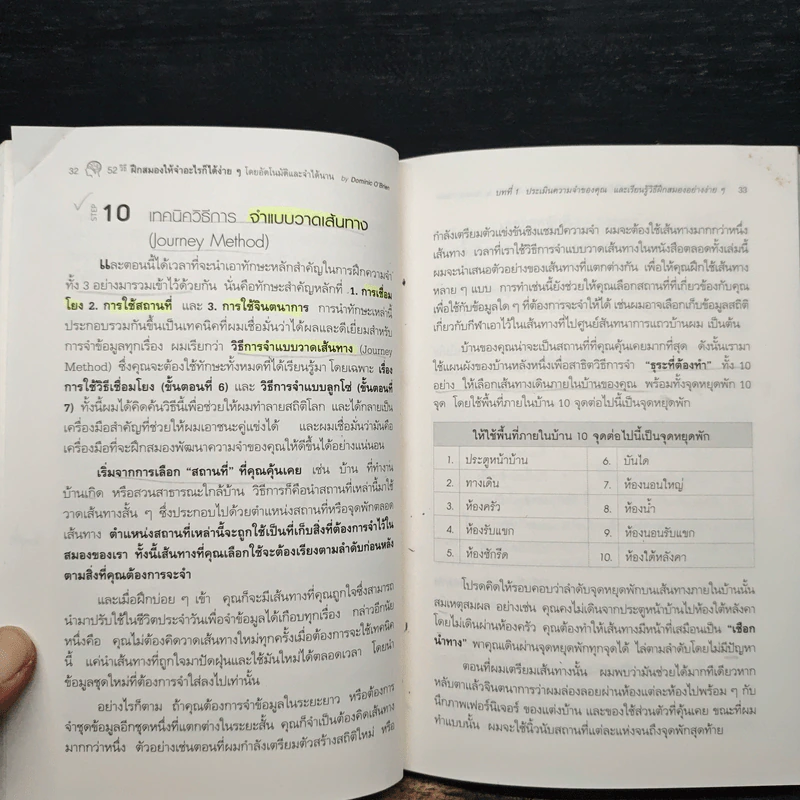 32 52 วิธี ฝึกสมองให้จำอะไรก็ได้ง่าย ๆ โดยอัตโนมัติและจำได้นาน by Dominic O'Brien
STEP 10 เทคนิควิธีการ จำแบบวาดเส้นทาง
(Journey Method)
และตอนนี้ได้เวลาที่จะนำเอาทักษะหลักสำคัญในการฝึกความจำ
ทั้ง 3 อย่างมารวมเข้าไว้ด้วยกัน นั่นคือทักษะสำคัญหลักที่ 1. การเชื่อม
โยง 2. การใช้สถานที่ และ 3. การใช้จินตนาการ การนำทักษะเหล่านี้
ประกอบรวมกันขึ้นเป็นเทคนิคที่ผมเชื่อมั่นว่าได้ผลและดีเยี่ยมสำหรับ
การจำข้อมูลทุกเรื่อง ผมเรียกว่า วิธีการจำแบบวาดเส้นทาง (Journey
Method) ซึ่งคุณจะต้องใช้ทักษะทั้งหมดที่ได้เรียนรู้มา โดยเฉพาะ เรื่อง
การใช้วิธีเชื่อมโยง (ขั้นตอนที่ 6) และ วิธีการจำแบบลูกโซ่ (ขั้นตอนที่
7) ทั้งนี้ผมได้คิดค้นวิธีนี้เพื่อช่วยให้ผมทำลายสถิติโลก และได้กลายเป็น
เครื่องมือสำคัญที่ช่วยให้ผมเอาชนะคู่แข่งได้ และผมเชื่อมั่นว่ามันคือ
เครื่องมือที่จะฝึกสมองพัฒนาความจำของคุณให้ดีขึ้นได้อย่างแน่นอน
เริ่มจากการเลือก "สถานที่" ที่คุณคุ้นเคย เช่น บ้าน ที่ทำงาน
บ้านเกิด หรือสวนสาธารณะใกล้บ้าน วิธีการก็คือนำสถานที่เหล่านี้มาใช้
วาดเส้นทางสั้น ๆ ซึ่งประกอบไปด้วยตำแหน่งสถานที่หรือจุดพักตลอด
เส้นทาง ตำแหน่งสถานที่เหล่านี้จะถูกใช้เป็นที่เก็บสิ่งที่ต้องการจำไว้ใน
สมองของเรา ทั้งนี้เส้นทางที่คุณเลือกใช้จะต้องเรียงตามลำดับก่อนหลัง
ตามสิ่งที่คุณต้องการจะจำ
และเมื่อฝึกบ่อย ๆ เข้า คุณก็จะมีเส้นทางที่คุณถูกใจซึ่งสามารถ
นำมาปรับใช้ในชีวิตประจำวันเพื่อจำข้อมูลได้เกือบทุกเรื่อง กล่าวอีกนัย
หนึ่งคือ คุณไม่ต้องคิดวาดเส้นทางใหม่ทุกครั้งเมื่อต้องการจะใช้เทคนิค
นี้ แค่นำเส้นทางที่ถูกใจมาปัดฝุ่นและใช้มันใหม่ได้ตลอดเวลา โดยนำ
ข้อมูลชุดใหม่ที่ต้องการจำใส่ลงไปเท่านั้น
อย่างไรก็ตาม ถ้าคุณต้องการจำข้อมูลในระยะยาว หรือต้องการ
จำชุดข้อมูลอีกชุดหนึ่งที่แตกต่างในระยะสั้น คุณก็จำเป็นต้องคิดเส้นทาง
มากกว่าหนึ่ง ตัวอย่างเช่นตอนที่ผมกำลังเตรียมตัวสร้างสถิติใหม่ หรือ
บทที่ 1 ประเมินความจำของคุณ และเรียนรู้วิธีฝึกสมองอย่างง่าย ๆ 33
กำลังเตรียมตัวแข่งขันชิงแชมป์ความจำ ผมจะต้องใช้เส้นทางมากกว่าหนึ่ง
เส้นทาง เวลาที่เราใช้วิธีการจำแบบวาดเส้นทางในหนังสือตลอดทั้งเล่มนี้
ผมจะนำเสนอตัวอย่างของเส้นทางที่แตกต่างกัน เพื่อให้คุณฝึกใช้เส้นทาง
หลาย ๆ แบบ การทำเช่นนี้ยังช่วยให้คุณเลือกสถานที่ที่เกี่ยวข้องกับคุณ
เพื่อใช้กับข้อมูลใด ๆ ที่ต้องการจะจำให้ได้ เช่นผมอาจเลือกเก็บข้อมูลสถิติ
เกี่ยวกับกีฬาเอาไว้ในเส้นทางที่ไปศูนย์สันทนาการแถวบ้านผม เป็นต้น
บ้านของคุณน่าจะเป็นสถานที่ที่คุณคุ้นเคยมากที่สุด ดังนั้นเรามา
ใช้แผนผังของบ้านหลังหนึ่งเพื่อสาธิตวิธีการจำ "ธุระที่ต้องทำ" ทั้ง 10
อย่าง ให้เลือกเส้นทางเดินภายในบ้านของคุณ พร้อมทั้งจุดหยุดพัก 10
จุด โดยใช้พื้นที่ภายในบ้าน 10 จุดต่อไปนี้เป็นจุดหยุดพัก
ให้ใช้พื้นที่ภายในบ้าน 10 จุดต่อไปนี้เป็นจุดหยุดพัก
1. ประตูหน้าบ้าน 6. บันได
2. ทางเดิน 7. ห้องนอนใหญ่
3. ห้องครัว 8. ห้องน้ำ
4. ห้องรับแขก 9. ห้องนอนรับแขก
5. ห้องซักรีด 10. ห้องใต้หลังคา
โปรดคิดให้รอบคอบว่าลำดับจุดหยุดพักบนเส้นทางภายในบ้านนั้น
สมเหตุสมผล อย่างเช่น คุณคงไม่เดินจากประตูหน้าบ้านไปห้องใต้หลังคา
โดยไม่เดินผ่านห้องครัว คุณต้องทำให้เส้นทางมีหน้าที่เสมือนเป็น "เชือก
นำทาง" พาคุณเดินผ่านจุดหยุดพักทุกจุดได้ ไล่ตามลำดับโดยไม่มีปัญหา
ตอนที่ผมเตรียมเส้นทางนั้น ผมพบว่ามันช่วยได้มากทีเดียวหาก
หลับตาแล้วจินตนาการว่าผมล่องลอยผ่านห้องแต่ละห้องไปพร้อม ๆ กับ
นึกภาพเฟอร์นิเจอร์ ของแต่งบ้าน และของใช้ส่วนตัวที่คุ้นเคย ขณะที่ผม
ทำแบบนั้น ผมจะใช้นิ้วนับสถานที่แต่ละแห่งจนถึงจุดพักสุดท้าย